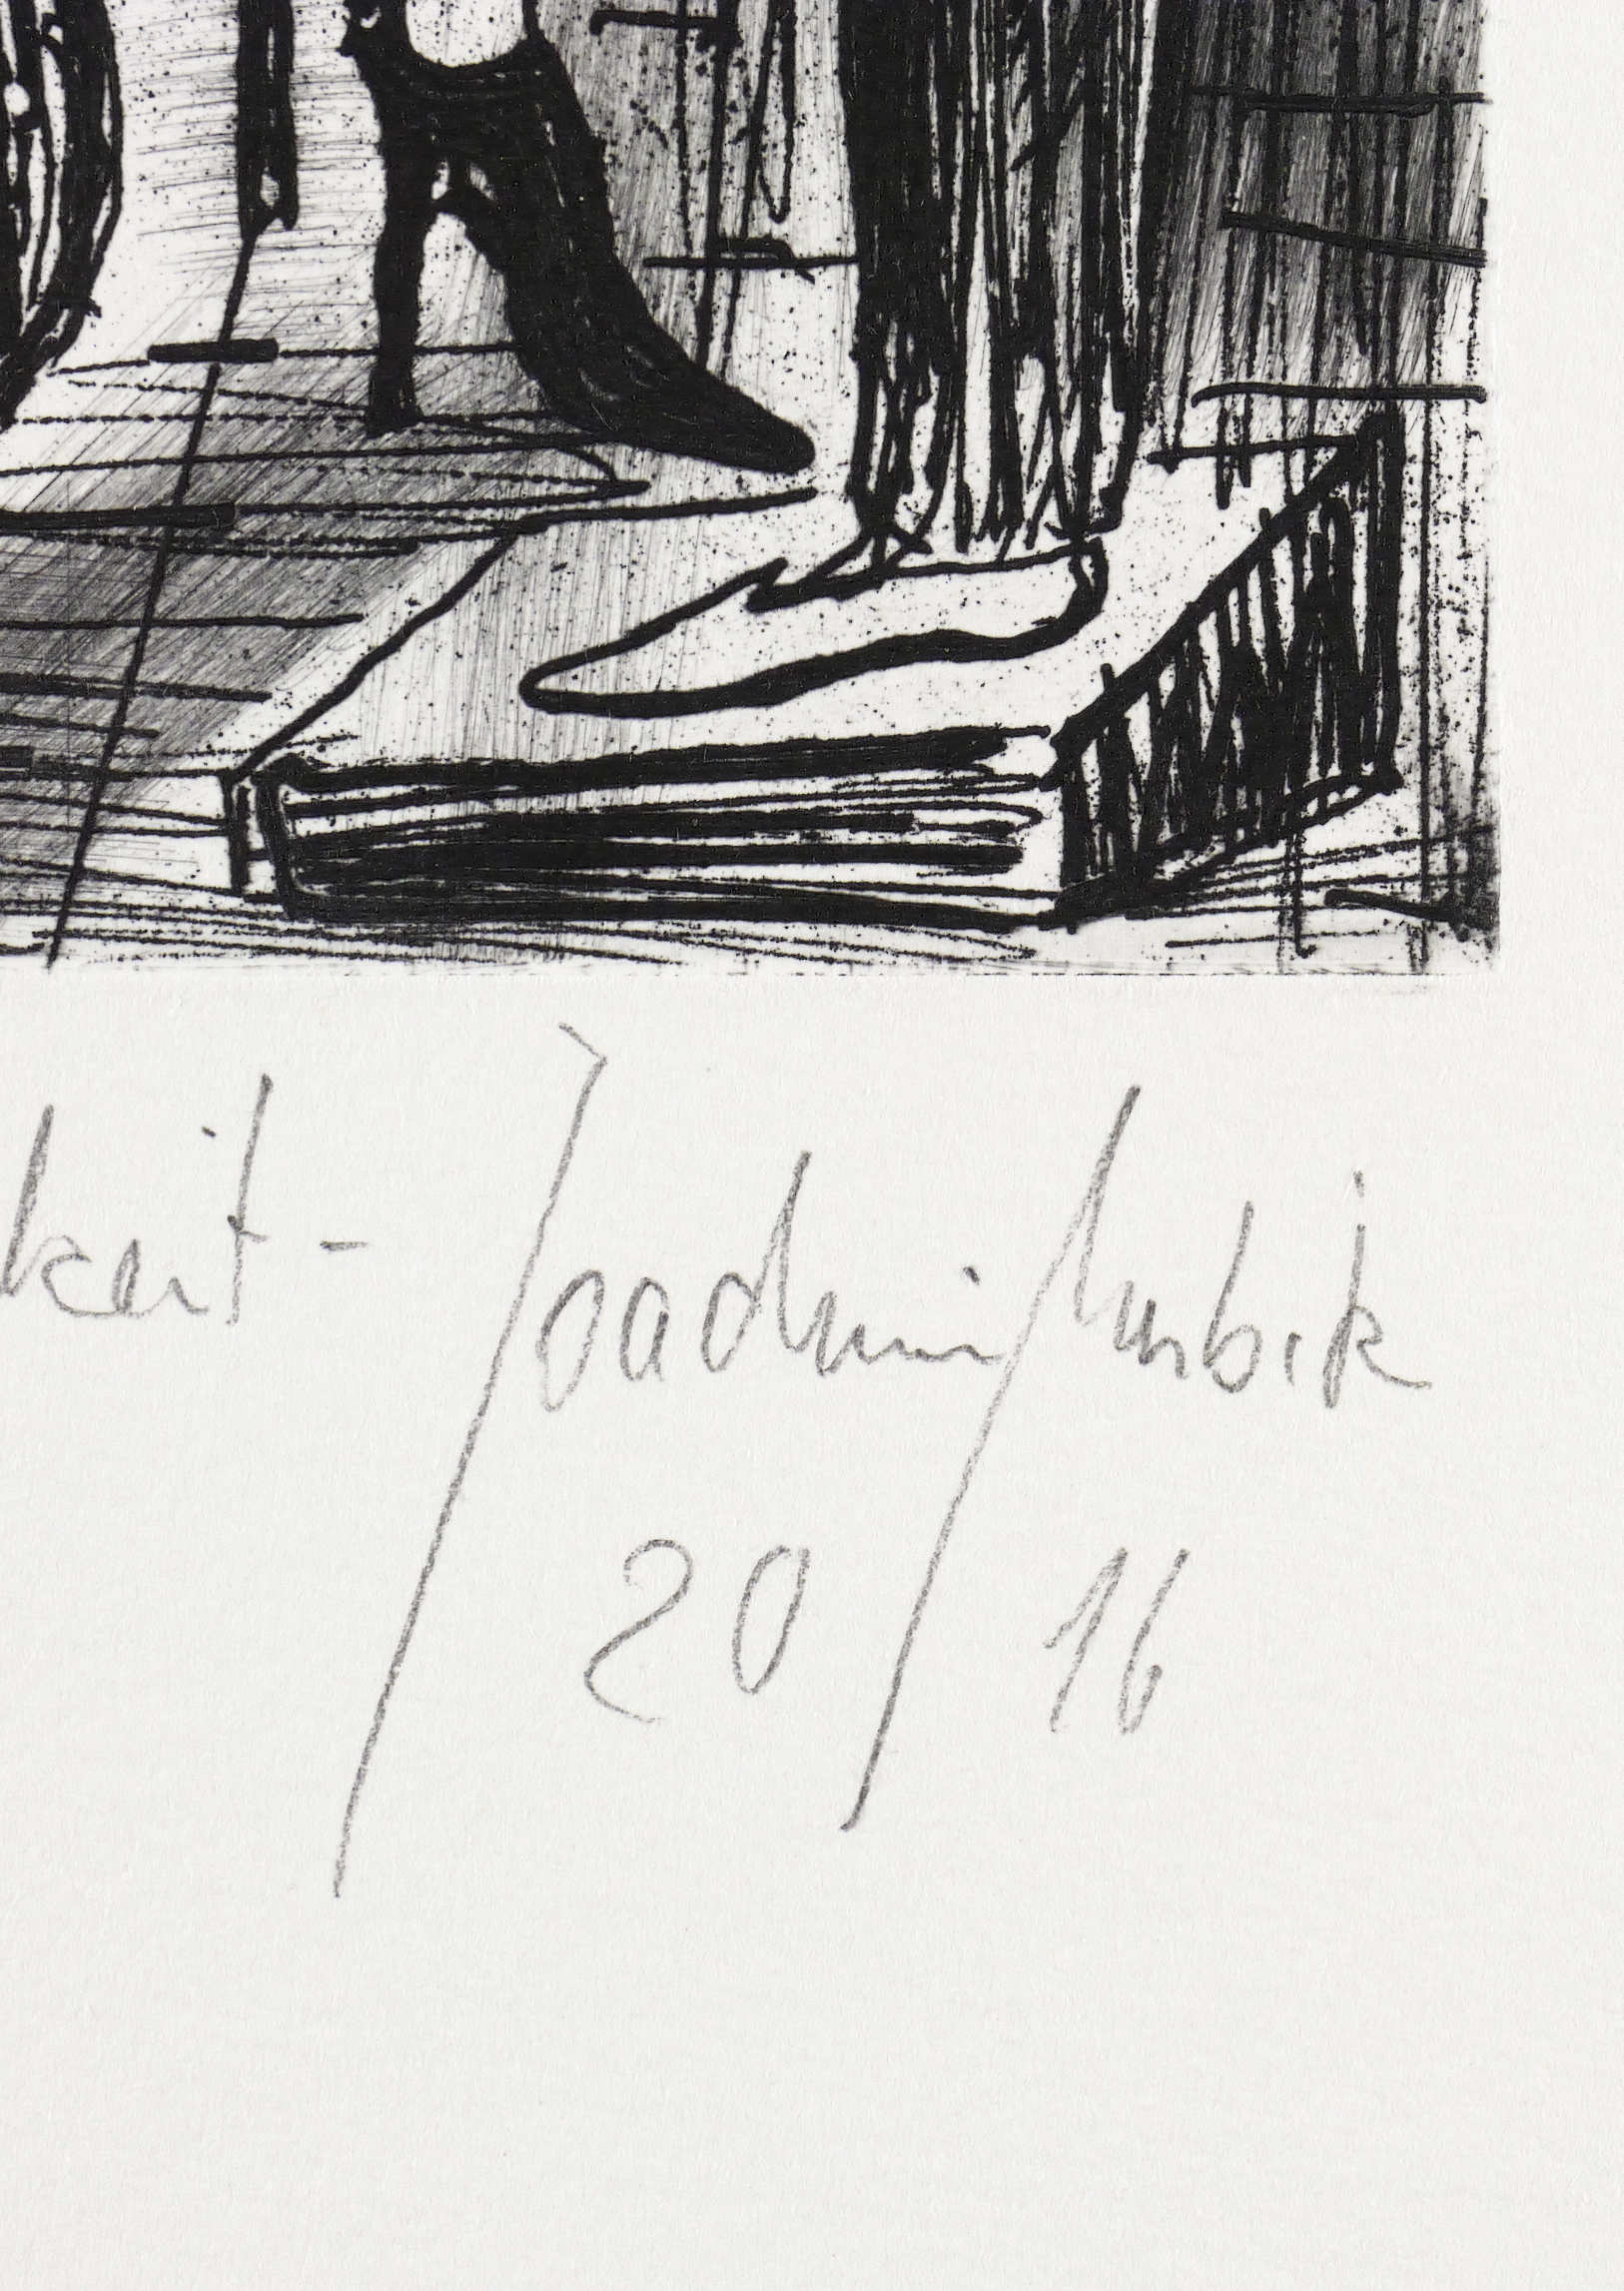 keit - Joachim
20 16